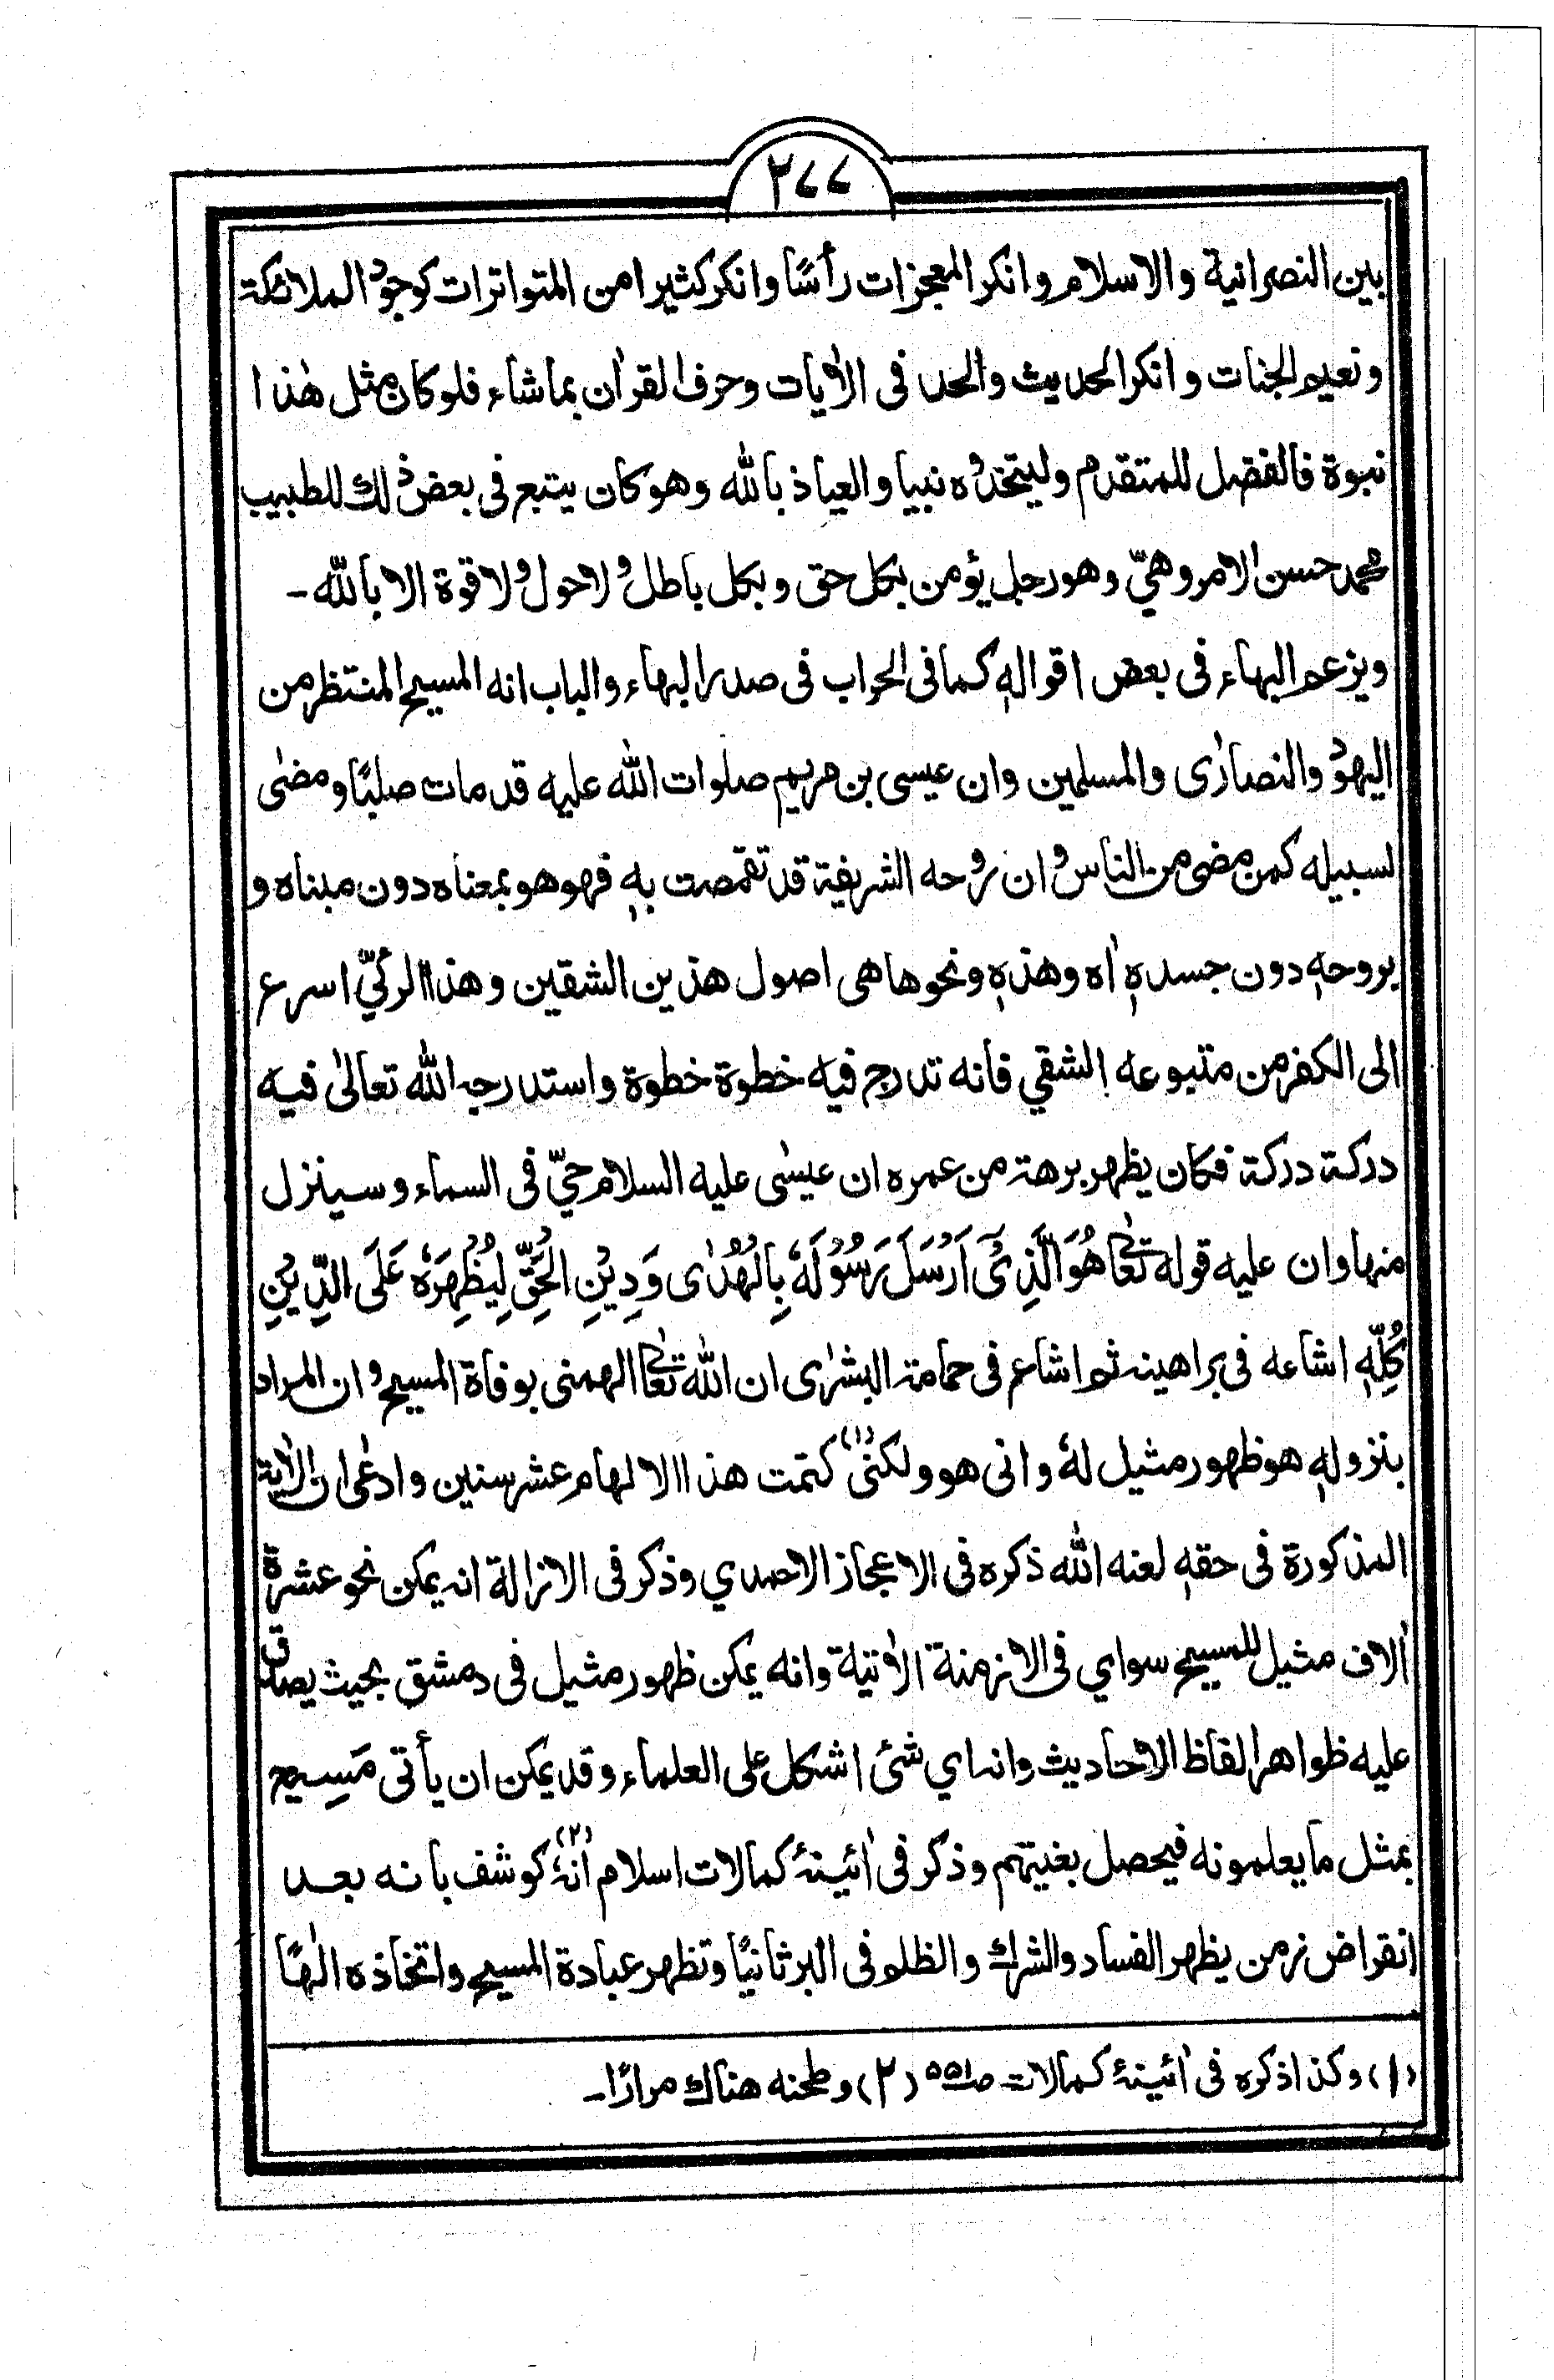 ٢٧٧
بين النصرانية والاسلام وانكر المعجزات رأسًا وانكر كثيرا من المتواترات كوجود الملائكة
ونعيم الجنات وانكر الحديث والحد في الاٰيات وحرف القراٰن بما شاء فلو كان مثل هٰذا
نبوة فالفضل للمتقدم وليتخذوه نبيا والعياذ بالله وهو كان يتبع في بعض ذلك للطبيب
محمد حسن الامروهيّ وهو رجل يؤمن بكل حق وبكل باطل ولا حول ولا قوة الا بالله-
ويزعم البهاء في بعض اقوالهٖ كما في الحراب في صدر البهاء والباب انه المسيح المنتظر من
اليهود والنصارٰى والمسلمين وان عيسى بن مريم صلوات الله عليه قد مات صلبًا ومضٰى
لسبيله كمن مضى من الناس وان روحه الشريفة قد تقمصت بهٖ فهو هو بمعناه دون مبناه و
بروحهٖ دون جسدهٖ اٰه وهذهٖ ونحوها هي اصول هذين الشقين وهذا الركيّ اسرع
الى الكفر من متبوعه الشقي فانه تدرج فيه خطوة خطوة واستدرجه الله تعالىٰ فيه
دركة دركة فكان يظهر برهة من عمره ان عيسٰى عليه السلام حيّ في السماء وسينزل
منها وان عليه قوله تعالىٰ هُوَ الَّذِيْٓ اَرْسَلَ رَسُوْلَهٗ بِالْهُدٰى وَدِيْنِ الْحَقِّ لِيُظْهِرَهٗ عَلَى الدِّيْنِ
كُلِّهٖ اشاعه في براهينه ثم اشاع في حمامة البشرٰى ان الله تعالىٰ الهمني بوفاة المسيح وان المراد
بنزولهٖ هو ظهور مثيل لهٗ واني هو ولكنى(١) كتمت هذا الالهام عشر سنين وادعٰى ان الاٰية
المذكورة في حقهٖ لعنه الله ذكره في الاعجاز الاحمدي وذكر في الازالة انه يمكن نحو عشرة
اٰلاف مثيل للمسيح سواي في الازمنة الاٰتية وانه يمكن ظهور مثيل في دمشق بحيث يصدق
عليه ظواهر الفاظ الاحاديث وانه اي شئ اشكل على العلماء وقد يمكن ان يأتى مَسِيح
بمثل ما يعلمونه فيحصل بغيتهم وذكر في اٰئينۂ كمالات اسلام انهٗ(٢) كوشف بانه بعد
انقراض زمن يظهر الفساد والشرك والظلم في البر ثانيًا وتظهر عبادة المسيح واتخاذه الٰهًا
(١) وكذا ذكره في اٰئينۂ كمالات صـ٥٥١ (٢) وطحنه هناك مرارًا-